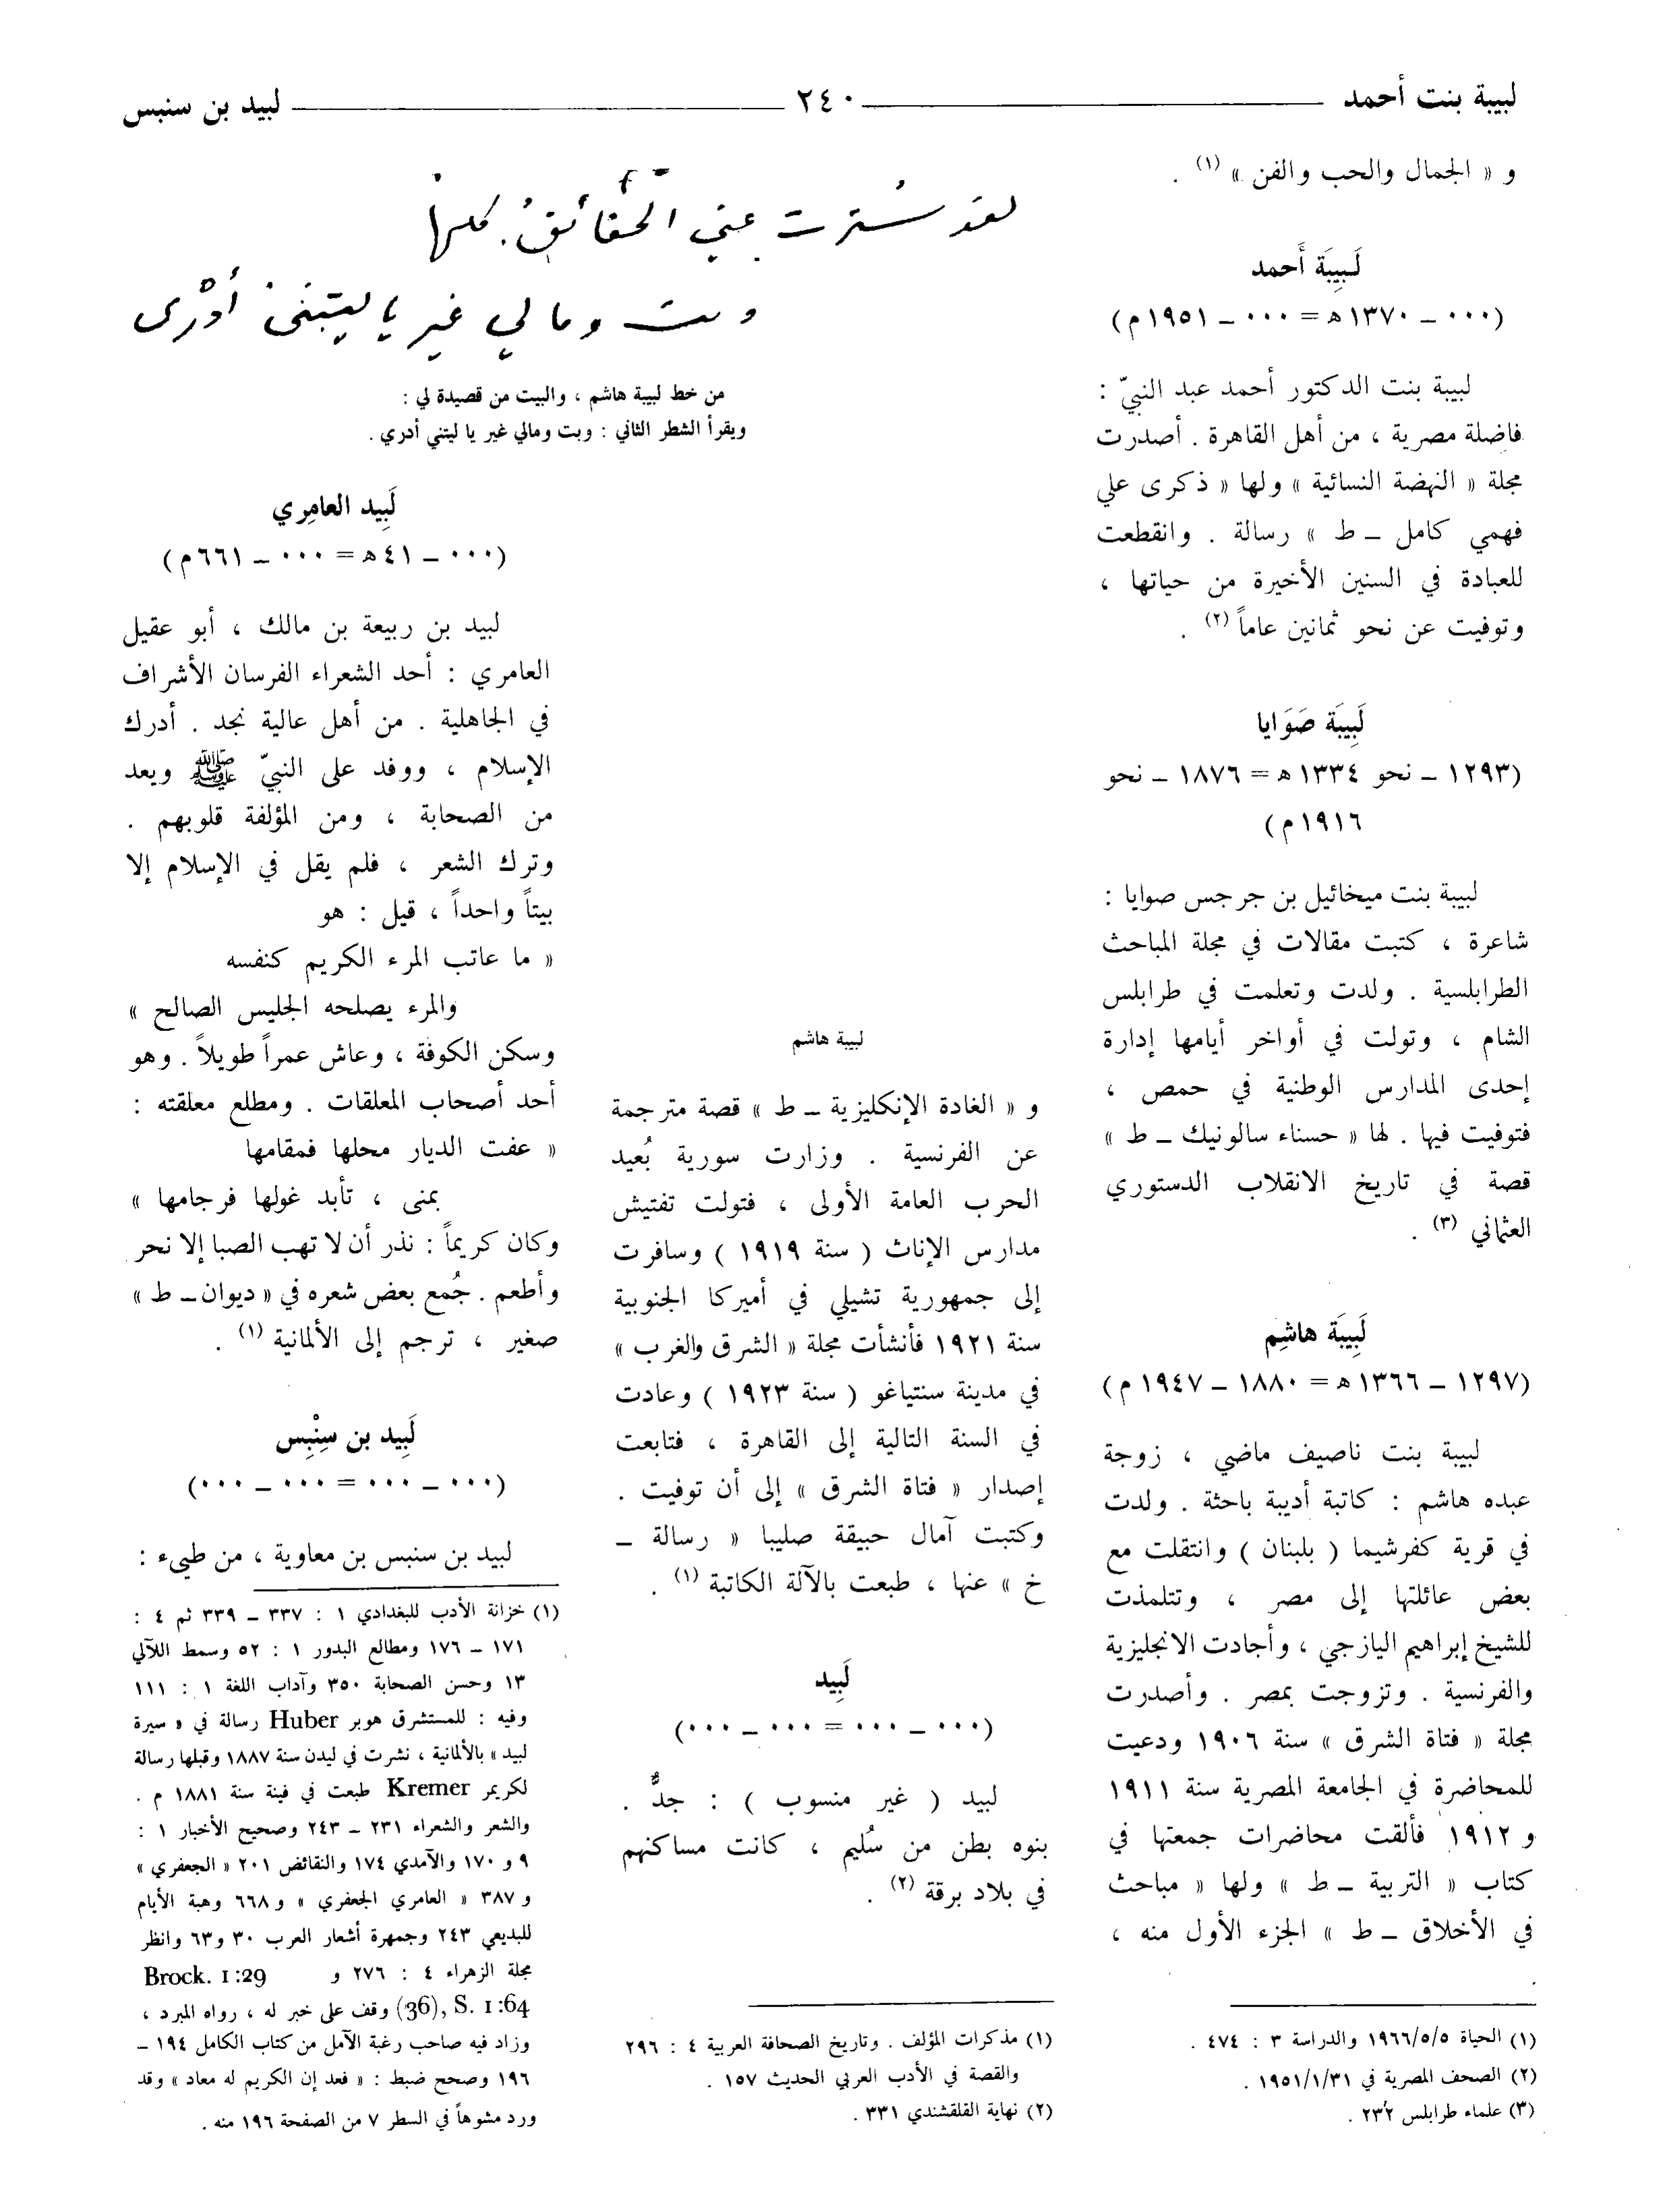 لبيبة بنت أحمد ٢٤٠ لبيد بن سنبس
و « الجمال والحب والفن » (١) .
لَبيبَة أَحمد
(٠٠٠ ـ ١٣٧٠ هـ = ٠٠٠ ـ ١٩٥١ م)
لبيبة بنت الدكتور أحمد عبد النبيّ :
فاضلة مصرية ، من أهل القاهرة . أصدرت
مجلة « النهضة النسائية » ولها « ذكرى علي
فهمي كامل ـ ط » رسالة . وانقطعت
للعبادة في السنين الأخيرة من حياتها ،
وتوفيت عن نحو ثمانين عاماً (٢) .
لَبِيبَة صَوَايا
(١٢٩٣ ـ نحو ١٣٣٤ هـ = ١٨٧٦ ـ نحو
١٩١٦ م)
لبيبة بنت ميخائيل بن جرجس صوايا :
شاعرة ، كتبت مقالات في مجلة المباحث
الطرابلسية . ولدت وتعلمت في طرابلس
الشام ، وتولت في أواخر أيامها إدارة
إحدى المدارس الوطنية في حمص ،
فتوفيت فيها . لها « حسناء سالونيك ـ ط »
قصة في تاريخ الانقلاب الدستوري
العثماني (٣) .
لَبِيبَة هاشِم
(١٢٩٧ ـ ١٣٦٦ هـ = ١٨٨٠ ـ ١٩٤٧ م)
لبيبة بنت ناصيف ماضي ، زوجة
عبده هاشم : كاتبة أديبة باحثة . ولدت
في قرية كفرشيما ( بلبنان ) وانتقلت مع
بعض عائلتها إلى مصر ، وتتلمذت
للشيخ إبراهيم اليازجي ، وأجادت الانجليزية
والفرنسية . وتزوجت بمصر . وأصدرت
مجلة « فتاة الشرق » سنة ١٩٠٦ ودعيت
للمحاضرة في الجامعة المصرية سنة ١٩١١
و ١٩١٢ فألقت محاضرات جمعتها في
كتاب « التربية ـ ط » ولها « مباحث
في الأخلاق ـ ط » الجزء الأول منه ،
(١) الحياة ١٩٦٦/٥/٥ والدراسة ٣ : ٤٧٤ .
(٢) الصحف المصرية في ١٩٥١/١/٣١ .
(٣) علماء طرابلس ٢٣٢ .
لقد سُترت عني الحقائقُ كلها
وبت ومالي غير يا ليتني أدْرى
من خط لبيبة هاشم ، والبيت من قصيدة لي :
ويقرأ الشطر الثاني : وبت ومالي غير يا ليتني أدري .
لبيبة هاشم
و « الغادة الإنكليزية ـ ط » قصة مترجمة
عن الفرنسية . وزارت سورية بُعيد
الحرب العامة الأولى ، فتولت تفتيش
مدارس الإناث ( سنة ١٩١٩ ) وسافرت
إلى جمهورية تشيلي في أميركا الجنوبية
سنة ١٩٢١ فأنشأت مجلة « الشرق والغرب »
في مدينة سنتياغو ( سنة ١٩٢٣ ) وعادت
في السنة التالية إلى القاهرة ، فتابعت
إصدار « فتاة الشرق » إلى أن توفيت .
وكتبت آمال حبيقة صليبا « رسالة ـ
خ » عنها ، طبعت بالآلة الكاتبة (١) .
لَبِيد
(٠٠٠ ـ ٠٠٠ = ٠٠٠ ـ ٠٠٠)
لبيد ( غير منسوب ) : جدٌّ .
بنوه بطن من سُليم ، كانت مساكنهم
في بلاد برقة (٢) .
(١) مذكرات المؤلف . وتاريخ الصحافة العربية ٤ : ٢٩٦
والقصة في الأدب العربي الحديث ١٥٧ .
(٢) نهاية القلقشندي ٣٣١ .
لَبِيد العامِري
(٠٠٠ ـ ٤١ هـ = ٠٠٠ ـ ٦٦١ م)
لبيد بن ربيعة بن مالك ، أبو عقيل
العامري : أحد الشعراء الفرسان الأشراف
في الجاهلية . من أهل عالية نجد . أدرك
الإسلام ، ووفد على النبيّ ﷺ ويعد
من الصحابة ، ومن المؤلفة قلوبهم .
وترك الشعر ، فلم يقل في الإسلام إلا
بيتاً واحداً ، قيل : هو
« ما عاتب المرء الكريم كنفسه
والمرء يصلحه الجليس الصالح »
وسكن الكوفة ، وعاش عمراً طويلاً . وهو
أحد أصحاب المعلقات . ومطلع معلقته :
« عفت الديار محلها فمقامها
بمنى ، تأبد غولها فرجامها »
وكان كريماً : نذر أن لا تهب الصبا إلا نحر
وأطعم . جُمع بعض شعره في « ديوان ـ ط »
صغير ، ترجم إلى الألمانية (١) .
لَبِيد بن سِنْبِس
(٠٠٠ ـ ٠٠٠ = ٠٠٠ ـ ٠٠٠)
لبيد بن سنبس بن معاوية ، من طيىء :
(١) خزانة الأدب للبغدادي ١ : ٣٣٧ ـ ٣٣٩ ثم ٤ :
١٧١ ـ ١٧٦ ومطالع البدور ١ : ٥٢ وسمط اللآلي
١٣ وحسن الصحابة ٣٥٠ وآداب اللغة ١ : ١١١
وفيه : للمستشرق هوبر Huber رسالة في « سيرة
لبيد » بالألمانية ، نشرت في ليدن سنة ١٨٨٧ وقبلها رسالة
لكريمر Kremer طبعت في فينة سنة ١٨٨١ م .
والشعر والشعراء ٢٣١ ـ ٢٤٣ وصحيح الأخبار ١ :
٩ و ١٧٠ والآمدي ١٧٤ والنقائض ٢٠١ « الجعفري »
و ٣٨٧ « العامري الجعفري » و ٦٦٨ وهبة الأيام
للبديعي ٢٤٣ وجمهرة أشعار العرب ٣٠ و٦٣ وانظر
مجلة الزهراء ٤ : ٢٧٦ و Brock. 1:29
(36), S. 1:64 وقف على خبر له ، رواه المبرد ،
وزاد فيه صاحب رغبة الآمل من كتاب الكامل ١٩٤ ـ
١٩٦ وصحح ضبط : « فعد إن الكريم له معاد » وقد
ورد مشوهاً في السطر ٧ من الصفحة ١٩٦ منه .